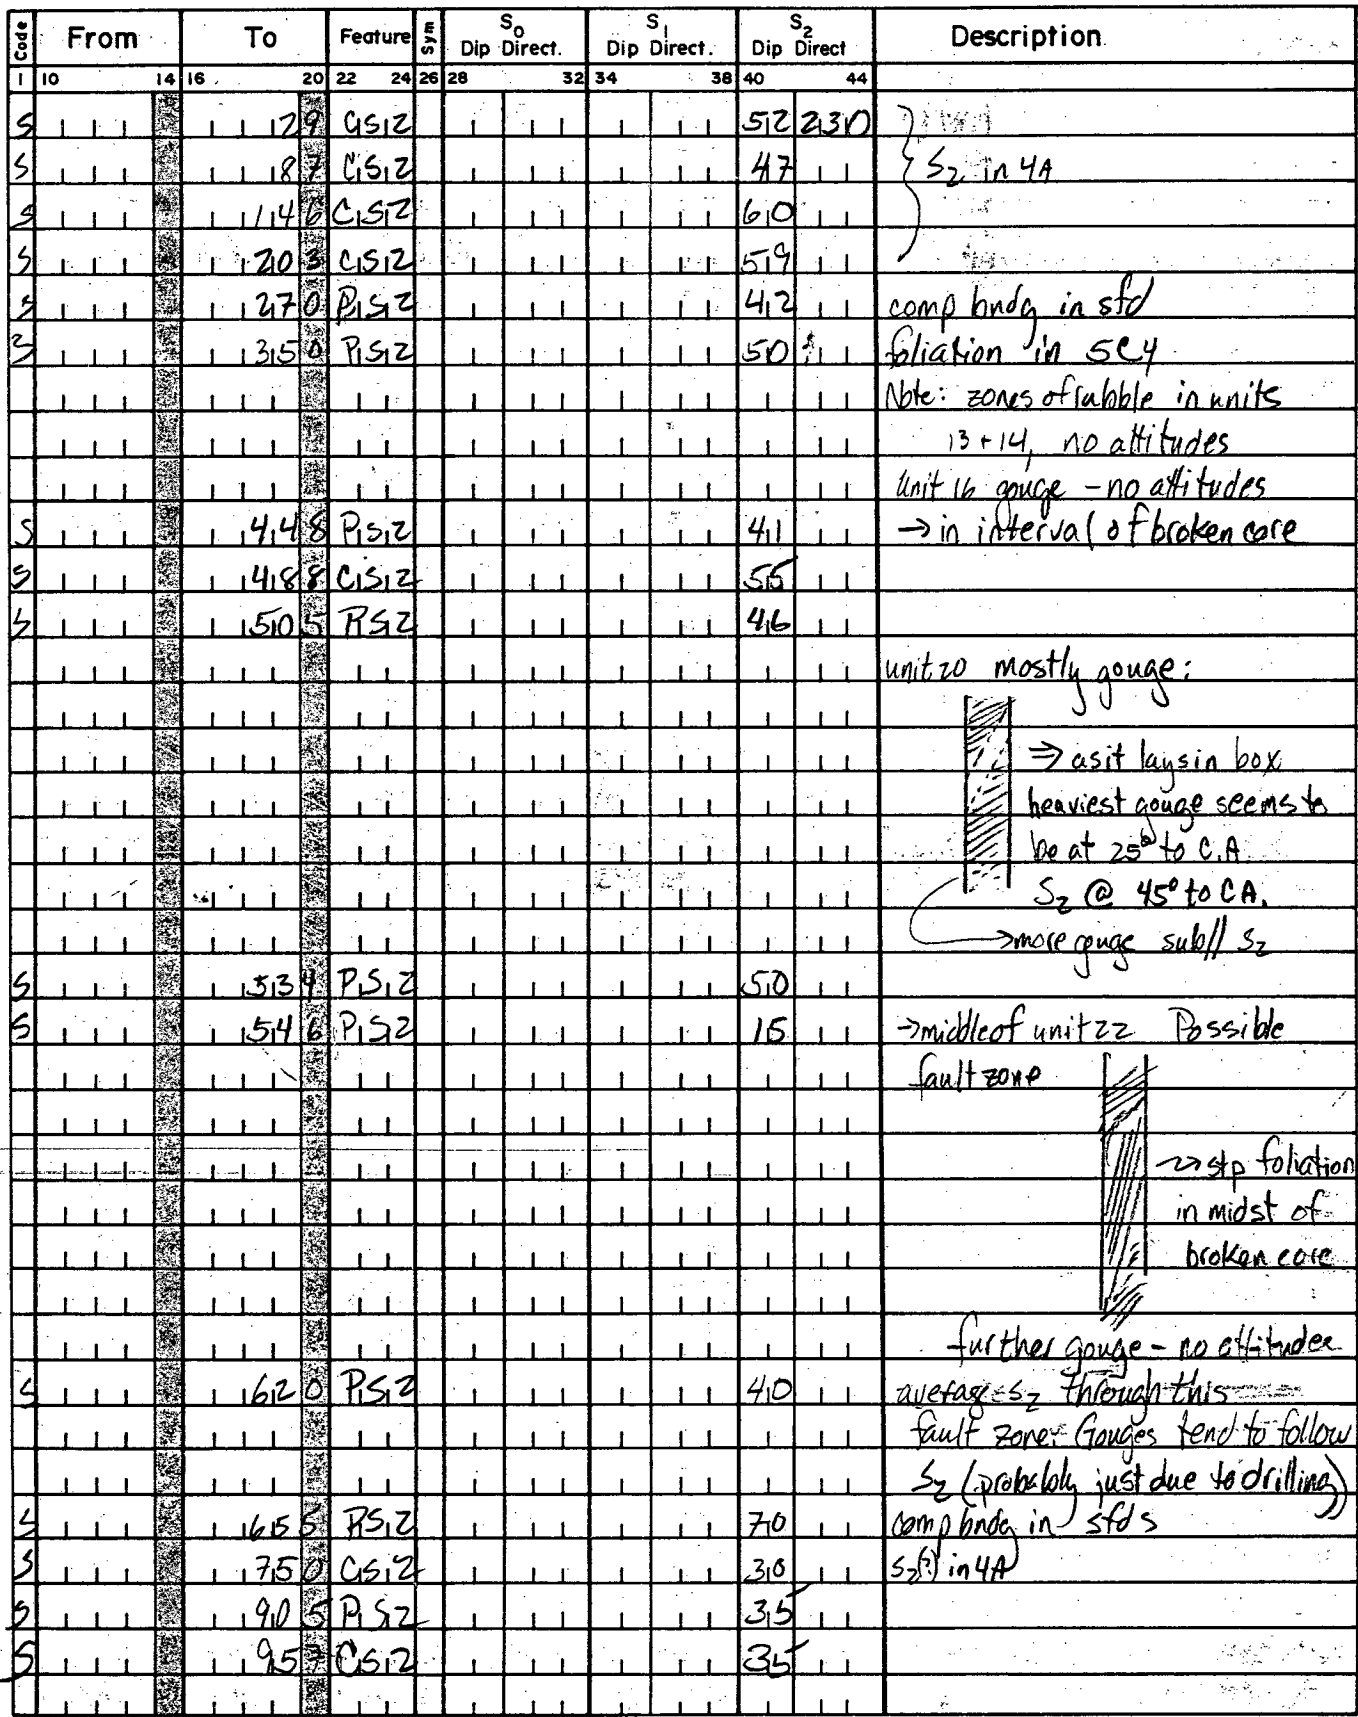 Code From To Feature Sym S0 Dip Direct. S1 Dip Direct. S2 Dip Direct Description
1 10 14 16 20 22 24 26 28 32 34 38 40 44
S 29 CS2 52 230
S 87 CS2 47 S2 in 4A
S 146 CS2 60
S 203 CS2 59
S 270 PS2 42 comp bndg in sfd
S 350 PS2 50 foliation in 5C4
Note: zones of rubble in units
13 + 14, no attitudes
Unit 16 gouge - no attitudes
S 448 PS2 41 → in interval of broken core
S 488 CS2 55
S 505 PS2 46
unit 20 mostly gouge:
⇒ as it lays in box
heaviest gouge seems to
be at 25° to C.A.
S2 @ 45° to CA.
→ more gouge sub// S2
S 534 PS2 50
S 546 PS2 15 → middle of unit 22 Possible
fault zone
→ stp foliation
in midst of
broken core
further gouge - no attitudes
S 620 PS2 40 average S2 through this
fault zone. Gouges tend to follow
S2 (probably just due to drilling)
S 655 PS2 70 comp bndg in sfds
S 750 CS2 30 S2(?) in 4A
S 905 PS2 35
S 957 CS2 35